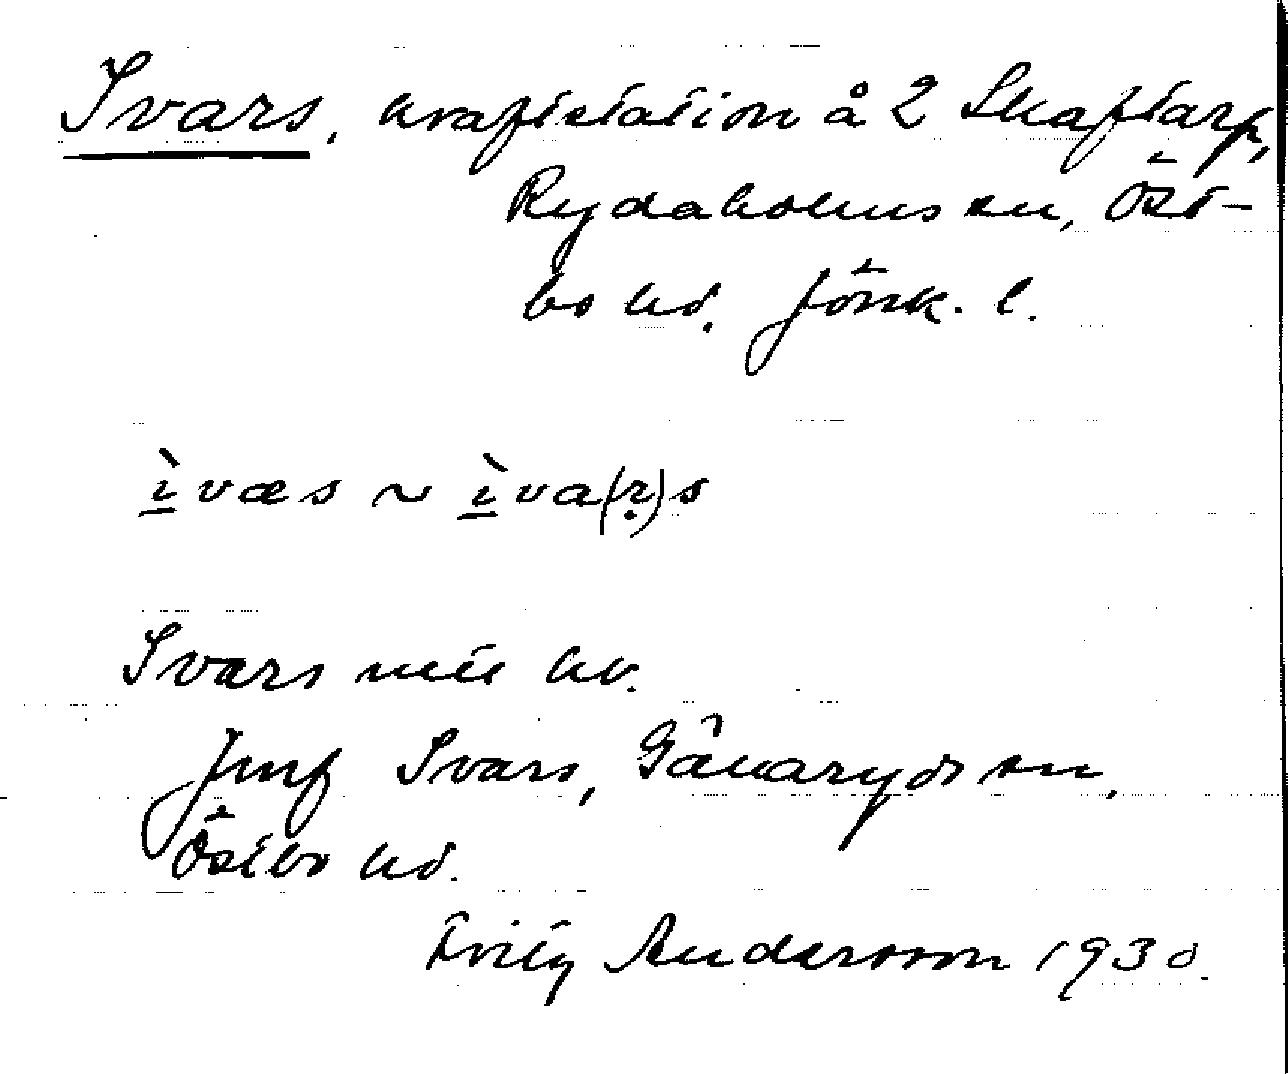 Ivars, kraftstation å 2 Skaftarp,
Rydaholms sn, Öst-
bo hd. Jönk. l.
ìvæs ~ ìva(r)s
Ivars
Jmf Ivars, Gånaryds sn,
Östbo hd.
Fritz Andersson 1930.